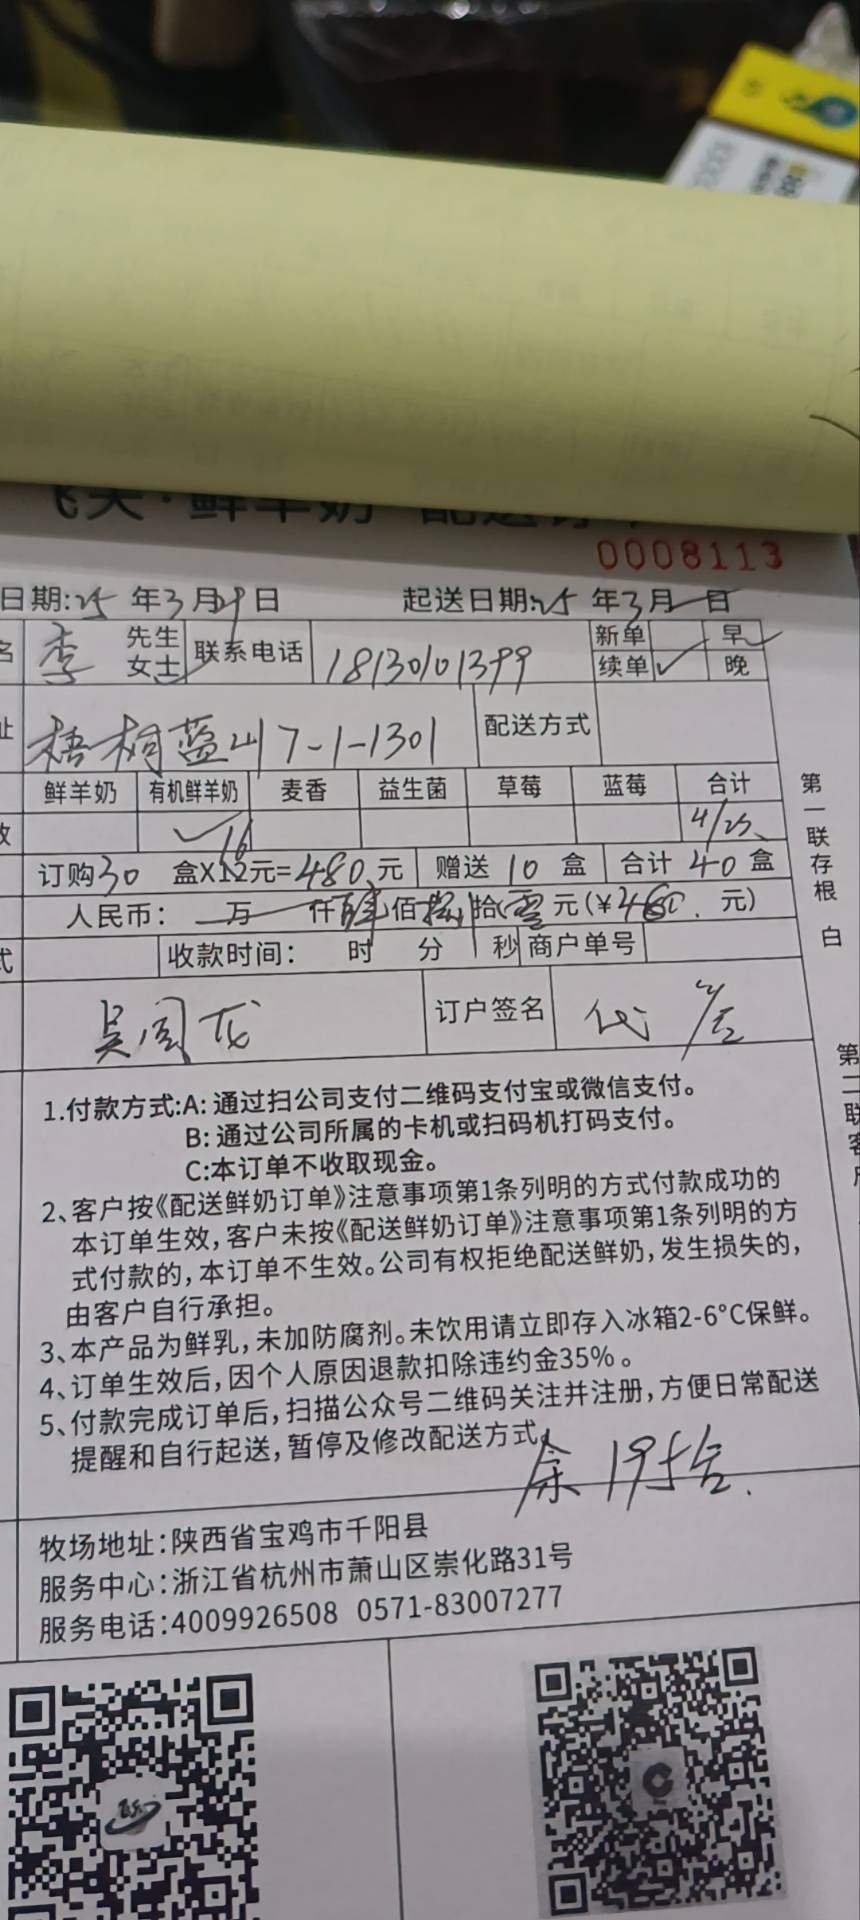 飞天·鲜羊奶 配送订单
0008113
日期:25 年3月29日 起送日期:25 年3月 日
名 李 先生 女士 联系电话 18130101399 新单 早
续单 ✓ 晚
址 梧桐蓝山7-1-1301 配送方式
鲜羊奶 有机鲜羊奶 麦香 益生菌 草莓 蓝莓 合计
数 ✓ 4/25
16
订购30 盒X12元=480元 赠送 10 盒 合计 40 盒
人民币: 万 仟 肆 佰 捌 拾 零 元(¥480.元)
式 收款时间: 时 分 秒 商户单号
吴周龙 订户签名 代 签
1.付款方式:A:通过扫公司支付二维码支付宝或微信支付。
B:通过公司所属的卡机或扫码机打码支付。
C:本订单不收取现金。
2、客户按《配送鲜奶订单》注意事项第1条列明的方式付款成功的
本订单生效,客户未按《配送鲜奶订单》注意事项第1条列明的方
式付款的,本订单不生效。公司有权拒绝配送鲜奶,发生损失的,
由客户自行承担。
3、本产品为鲜乳,未加防腐剂。未饮用请立即存入冰箱2-6°C保鲜。
4、订单生效后,因个人原因退款扣除违约金35%。
5、付款完成订单后,扫描公众号二维码关注并注册,方便日常配送
提醒和自行起送,暂停及修改配送方式。
余19
牧场地址:陕西省宝鸡市千阳县
服务中心:浙江省杭州市萧山区崇化路31号
服务电话:4009926508 0571-83007277
第一联存根 白
第二联客户